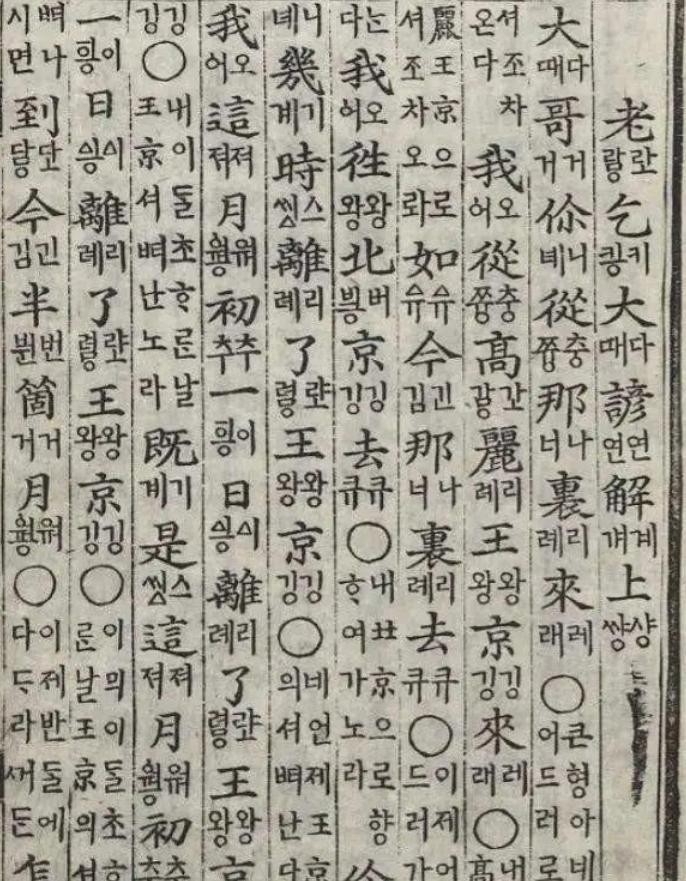 老랗랖乞킹키大때다諺연연解계계上썅샹
大때다哥거거你녜니從쭝충那너나裏례리來래레○큰형아네어드러로
셔조차온다我어오從쭝충高麗례리王왕왕京깅깅來래레○내高
麗王京으로셔조차오롸如슈유今김긴那너나裏례리去큐큐○이제어드러가
는다我어오往왕왕北븡버京깅깅去큐큐○내北京으로향ᄒᆞ여가노라你
녜니幾계기時씽스離례리了王왕왕京깅깅○네언제王京의셔ᄠᅥ난다
我어오這져져月初추추一힁이日싕싀離례리了王왕왕京
깅깅○내이ᄃᆞᆯ초ᄒᆞᄅᆞᆫ날王京셔ᄠᅥ난노라既계기是씽스這져져月初추추
一힁이日싕싀離례리了王왕왕京깅깅○이믜이ᄃᆞᆯ초ᄒᆞᄅᆞᆫ날王京의셔
ᄠᅥ나시면到今김긴半箇거거月○이제반ᄃᆞᆯ에다ᄃᆞ라